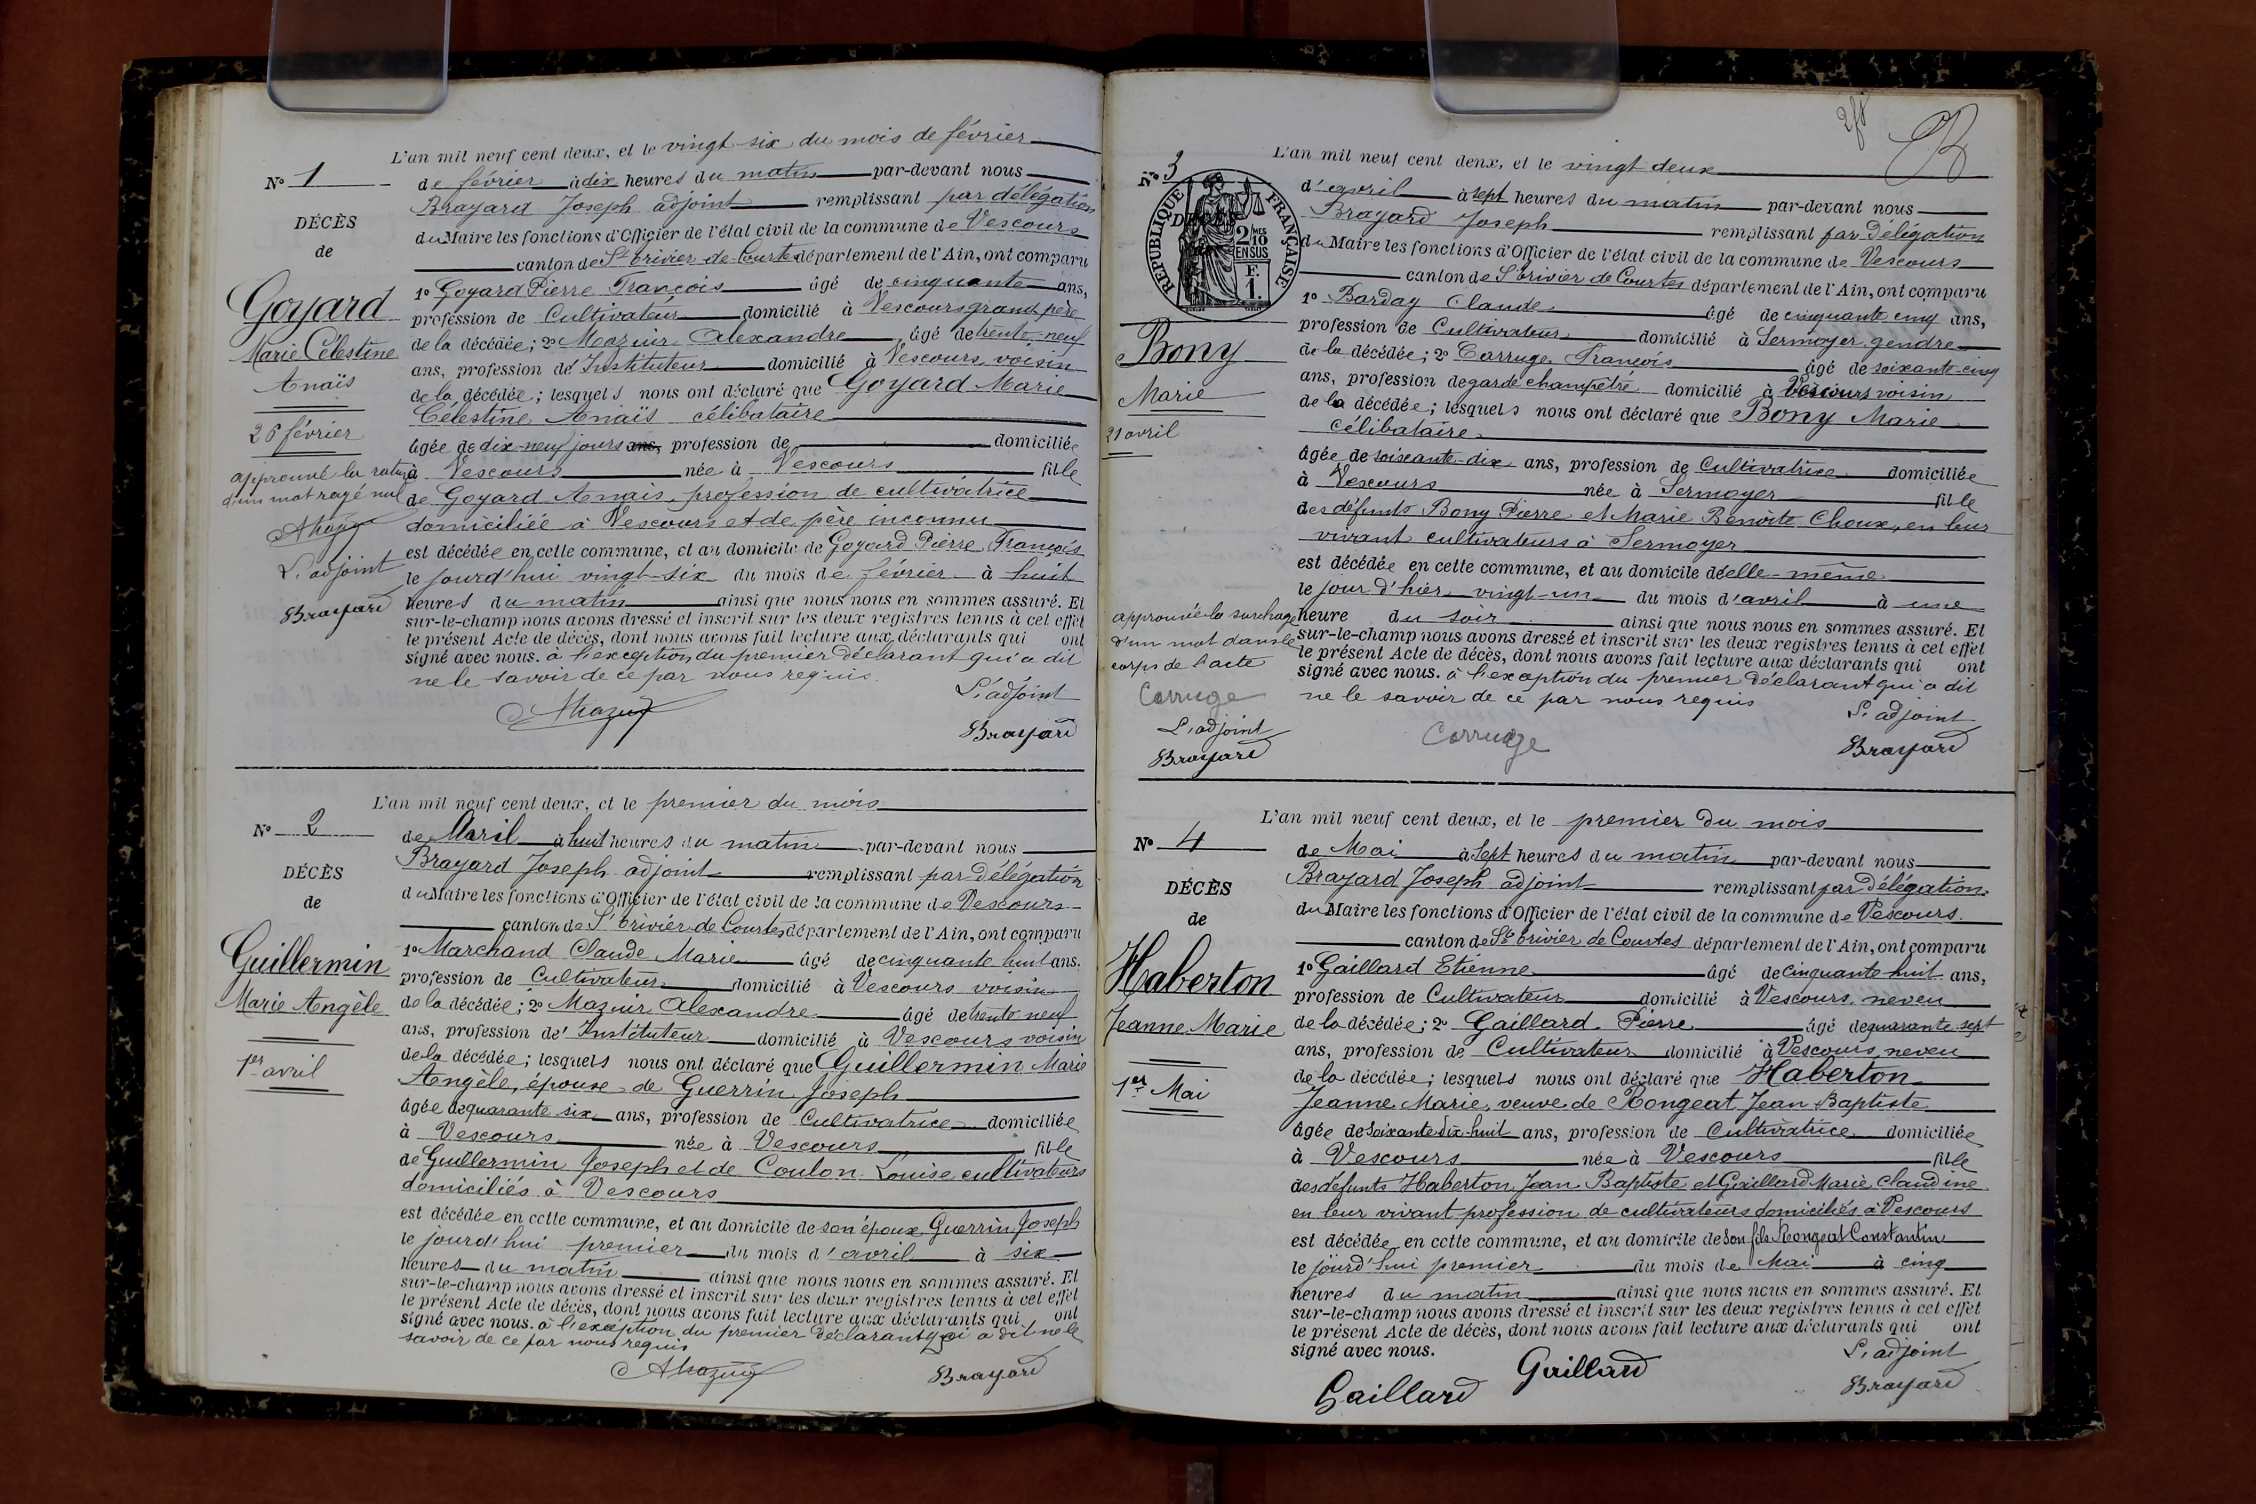 L'an mil neuf cent deux, et le vingt-six du mois de février
N° 1
de février à dix heures du matin par-devant nous
Brayard Joseph adjoint remplissant par délégation
DÉCÈS
du Maire les fonctions d'Officier de l'état civil de la commune de Vescours
de
canton de St Trivier de Courtes département de l'Ain, ont comparu
1° Goyard Pierre François âgé de cinquante ans,
Goyard
profession de Cultivateur domicilié à Vescours grand père
Marie Célestine
de la décédée; 2° Mazuir Alexandre âgé de trente-neuf
Anaïs
ans, profession d'Instituteur domicilié à Vescours, voisin
de la décédée; lesquels nous ont déclaré que Goyard Marie
Célestine Anaïs célibataire
26 février
âgée de dix-neuf jours ans, profession de domiciliée
approuvé la rature
à Vescours née à Vescours fille
d'un mot rayé nul
de Goyard Anaïs, profession de cultivatrice
domiciliée à Vescours et de père inconnu
AMazuir
est décédée en cette commune, et au domicile de Goyard Pierre François
L'adjoint
le jourd'hui vingt-six du mois de février à huit
Brayard
heures du matin ainsi que nous nous en sommes assuré. Et
sur-le-champ nous avons dressé et inscrit sur les deux registres tenus à cet effet
le présent Acte de décès, dont nous avons fait lecture aux déclarants qui ont
signé avec nous. à l'exception du premier déclarant qui a dit
ne le savoir de ce par nous requis.
L'adjoint
AMazuir
Brayard
L'an mil neuf cent deux, et le premier du mois
N° 2
de Avril à huit heures du matin par-devant nous
Brayard Joseph adjoint remplissant par délégation
DÉCÈS
du Maire les fonctions d'Officier de l'état civil de la commune de Vescours
de
canton de St Trivier de Courtes département de l'Ain, ont comparu
Guillermin
1° Marchand Claude Marie âgé de cinquante huit ans.
profession de Cultivateur domicilié à Vescours voisin
Marie Angèle
de la décédée; 2° Mazuir Alexandre âgé de trente neuf
ans, profession d'Instituteur domicilié à Vescours voisin
1er avril
de la décédée; lesquels nous ont déclaré que Guillermin Marie
Angèle, épouse de Guerrin Joseph
âgée de quarante six ans, profession de Cultivatrice domiciliée
à Vescours née à Vescours fille
de Guillermin Joseph et de Coulon Louise cultivateurs
domiciliés à Vescours
est décédée en cette commune, et au domicile de son époux Guerrin Joseph
le jourd'hui premier du mois d'avril à six
heures du matin ainsi que nous nous en sommes assuré. Et
sur-le-champ nous avons dressé et inscrit sur les deux registres tenus à cet effet
le présent Acte de décès, dont nous avons fait lecture aux déclarants qui ont
signé avec nous. à l'exception du premier déclarant qui a dit ne le
savoir de ce par nous requis
AMazuir
Brayard
L'an mil neuf cent deux, et le vingt deux
N° 3
d'avril à sept heures du matin par-devant nous
Brayard Joseph remplissant par délégation
DÉCÈS
RÉPUBLIQUE FRANÇAISE
2/10 MES
EN SUS
F. 1.
du Maire les fonctions d'Officier de l'état civil de la commune de Vescours
canton de St Trivier de Courtes département de l'Ain, ont comparu
1° Barday Claude âgé de cinquante cinq ans,
profession de Cultivateur domicilié à Sermoyer gendre
Bony
de la décédée; 2° Carruge François âgé de soixante-cinq
Marie
ans, profession de garde champêtre domicilié à Vescours voisin
de la décédée; lesquels nous ont déclaré que Bony Marie
21 avril
célibataire
âgée de soixante-dix ans, profession de Cultivatrice domiciliée
à Vescours née à Sermoyer fille
des défunts Bony Pierre et Marie Benoite Choux, en leur
vivant cultivateurs à Sermoyer
est décédée en cette commune, et au domicile d'elle-même
le jour d'hier vingt-un du mois d'avril à une
approuvée la surcharge
heure du soir ainsi que nous nous en sommes assuré. Et
d'un mot dans le
sur-le-champ nous avons dressé et inscrit sur les deux registres tenus à cet effet
corps de l'acte
le présent Acte de décès, dont nous avons fait lecture aux déclarants qui ont
signé avec nous. à l'exception du premier déclarant qui a dit
Carruge
ne le savoir de ce par nous requis
L'adjoint
L'adjoint
Brayard
Carruge
Brayard
L'an mil neuf cent deux, et le premier du mois
N° 4
de Mai à sept heures du matin par-devant nous
Brayard Joseph adjoint remplissant par délégation
DÉCÈS
du Maire les fonctions d'Officier de l'état civil de la commune de Vescours.
de
canton de St Trivier de Courtes département de l'Ain, ont comparu
Haberton
1° Gaillard Etienne âgé de cinquante huit ans,
profession de Cultivateur domicilié à Vescours, neveu
Jeanne Marie
de la décédée; 2° Gaillard Pierre âgé de quarante sept
ans, profession de Cultivateur domicilié à Vescours, neveu
1er Mai
de la décédée; lesquels nous ont déclaré que Haberton
Jeanne Marie, veuve de Rongeat Jean Baptiste
âgée de soixante dix-huit ans, profession de Cultivatrice domiciliée
à Vescours née à Vescours fille
des défunts Haberton Jean Baptiste et Gaillard Marie Claudine
en leur vivant profession de cultivateurs domiciliés à Vescours
est décédée en cette commune, et au domicile de son fils Rongeat Constantin
le jourd'hui premier du mois de Mai à cinq
heures du matin ainsi que nous nous en sommes assuré. Et
sur-le-champ nous avons dressé et inscrit sur les deux registres tenus à cet effet
le présent Acte de décès, dont nous avons fait lecture aux déclarants qui ont
signé avec nous.
L'adjoint
Gaillard
Gaillard
Brayard